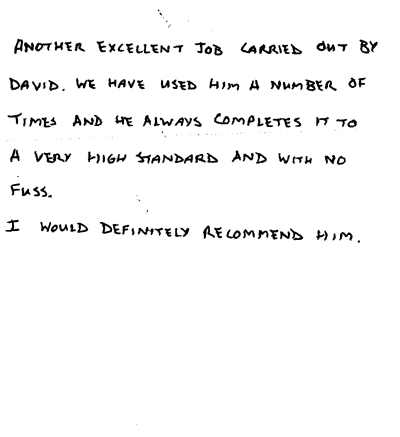 ANOTHER EXCELLENT JOB CARRIED OUT BY
DAVID. WE HAVE USED HIM A NUMBER OF
TIMES AND HE ALWAYS COMPLETES IT TO
A VERY HIGH STANDARD AND WITH NO
FUSS.
I WOULD DEFINITELY RECOMMEND HIM.